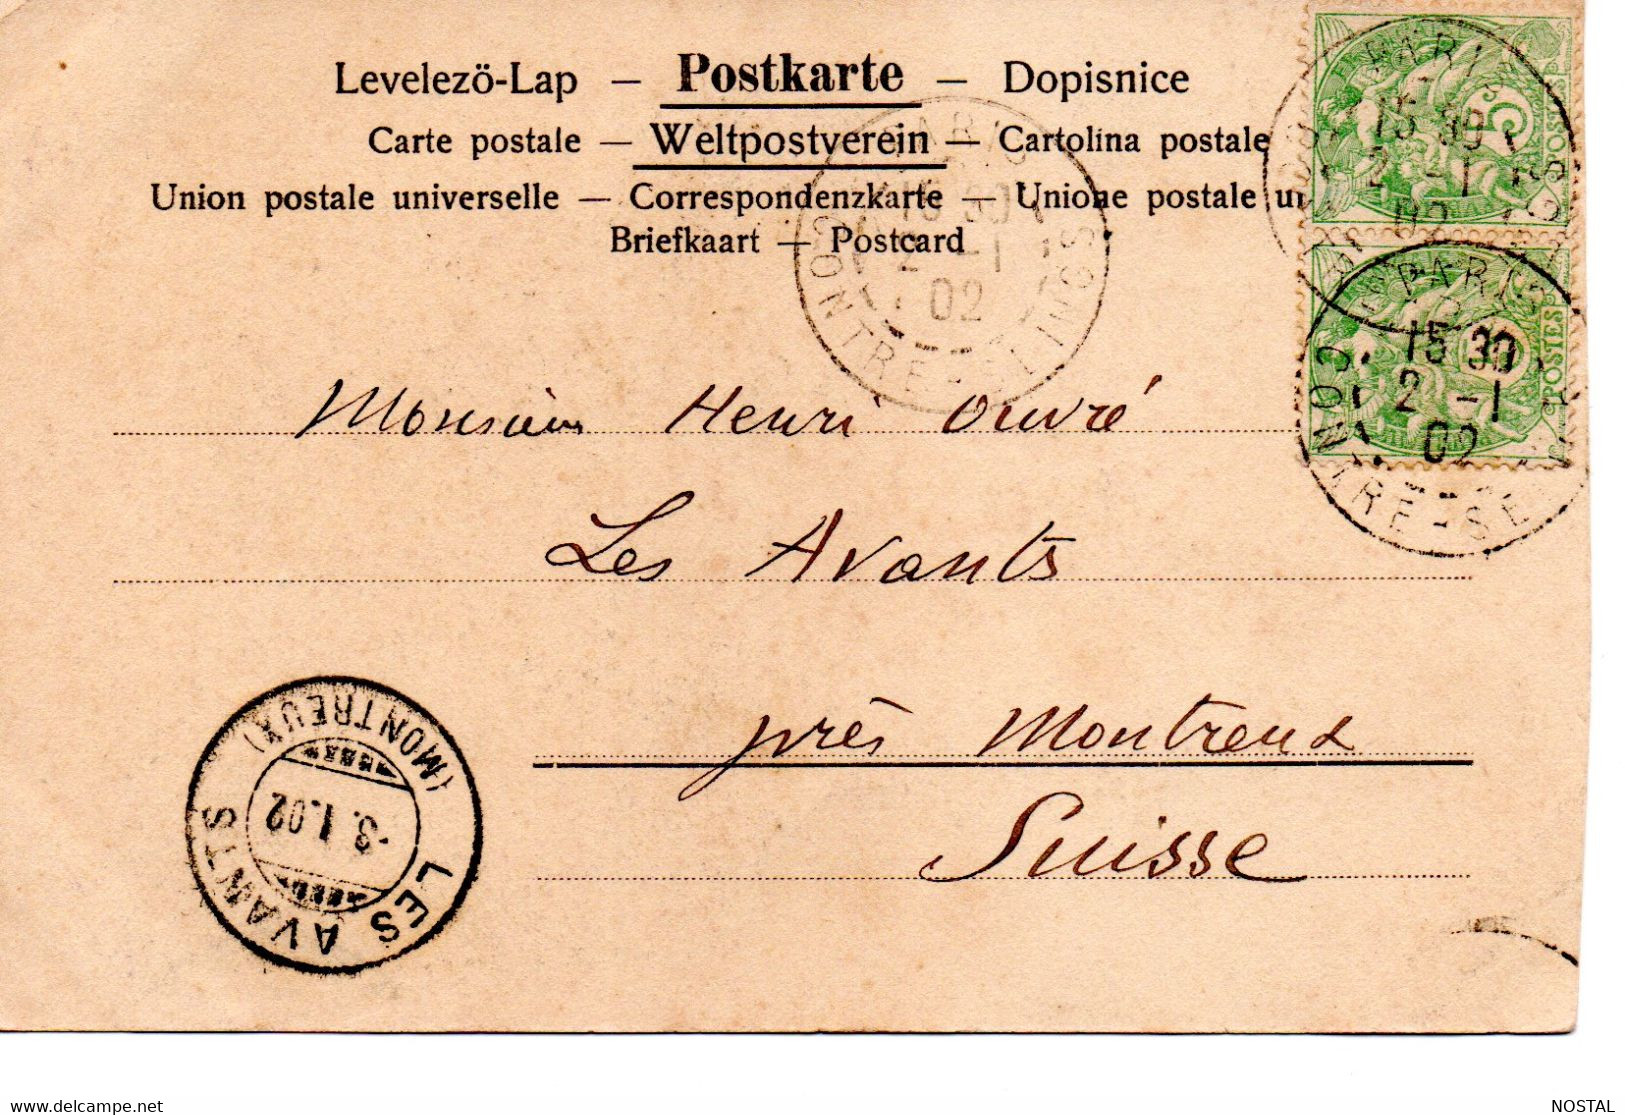 Levelezö-Lap — Postkarte — Dopisnice
Carte postale — Weltpostverein — Cartolina postale
Union postale universelle — Correspondenzkarte — Unione postale
Briefkaart — Postcard
PARIS
15 30
2 -1
02
5
POSTES
PARIS
15 30
2 -1
02
CONTRE-SEINGS
PARIS
15 30
2 -1
02
POSTES
Monsieur Henri Ouvré
Les Avants
près Montreux
Suisse
LES AVANTS
(MONTREUX)
3.1.02
delcampe.net
NOSTAL